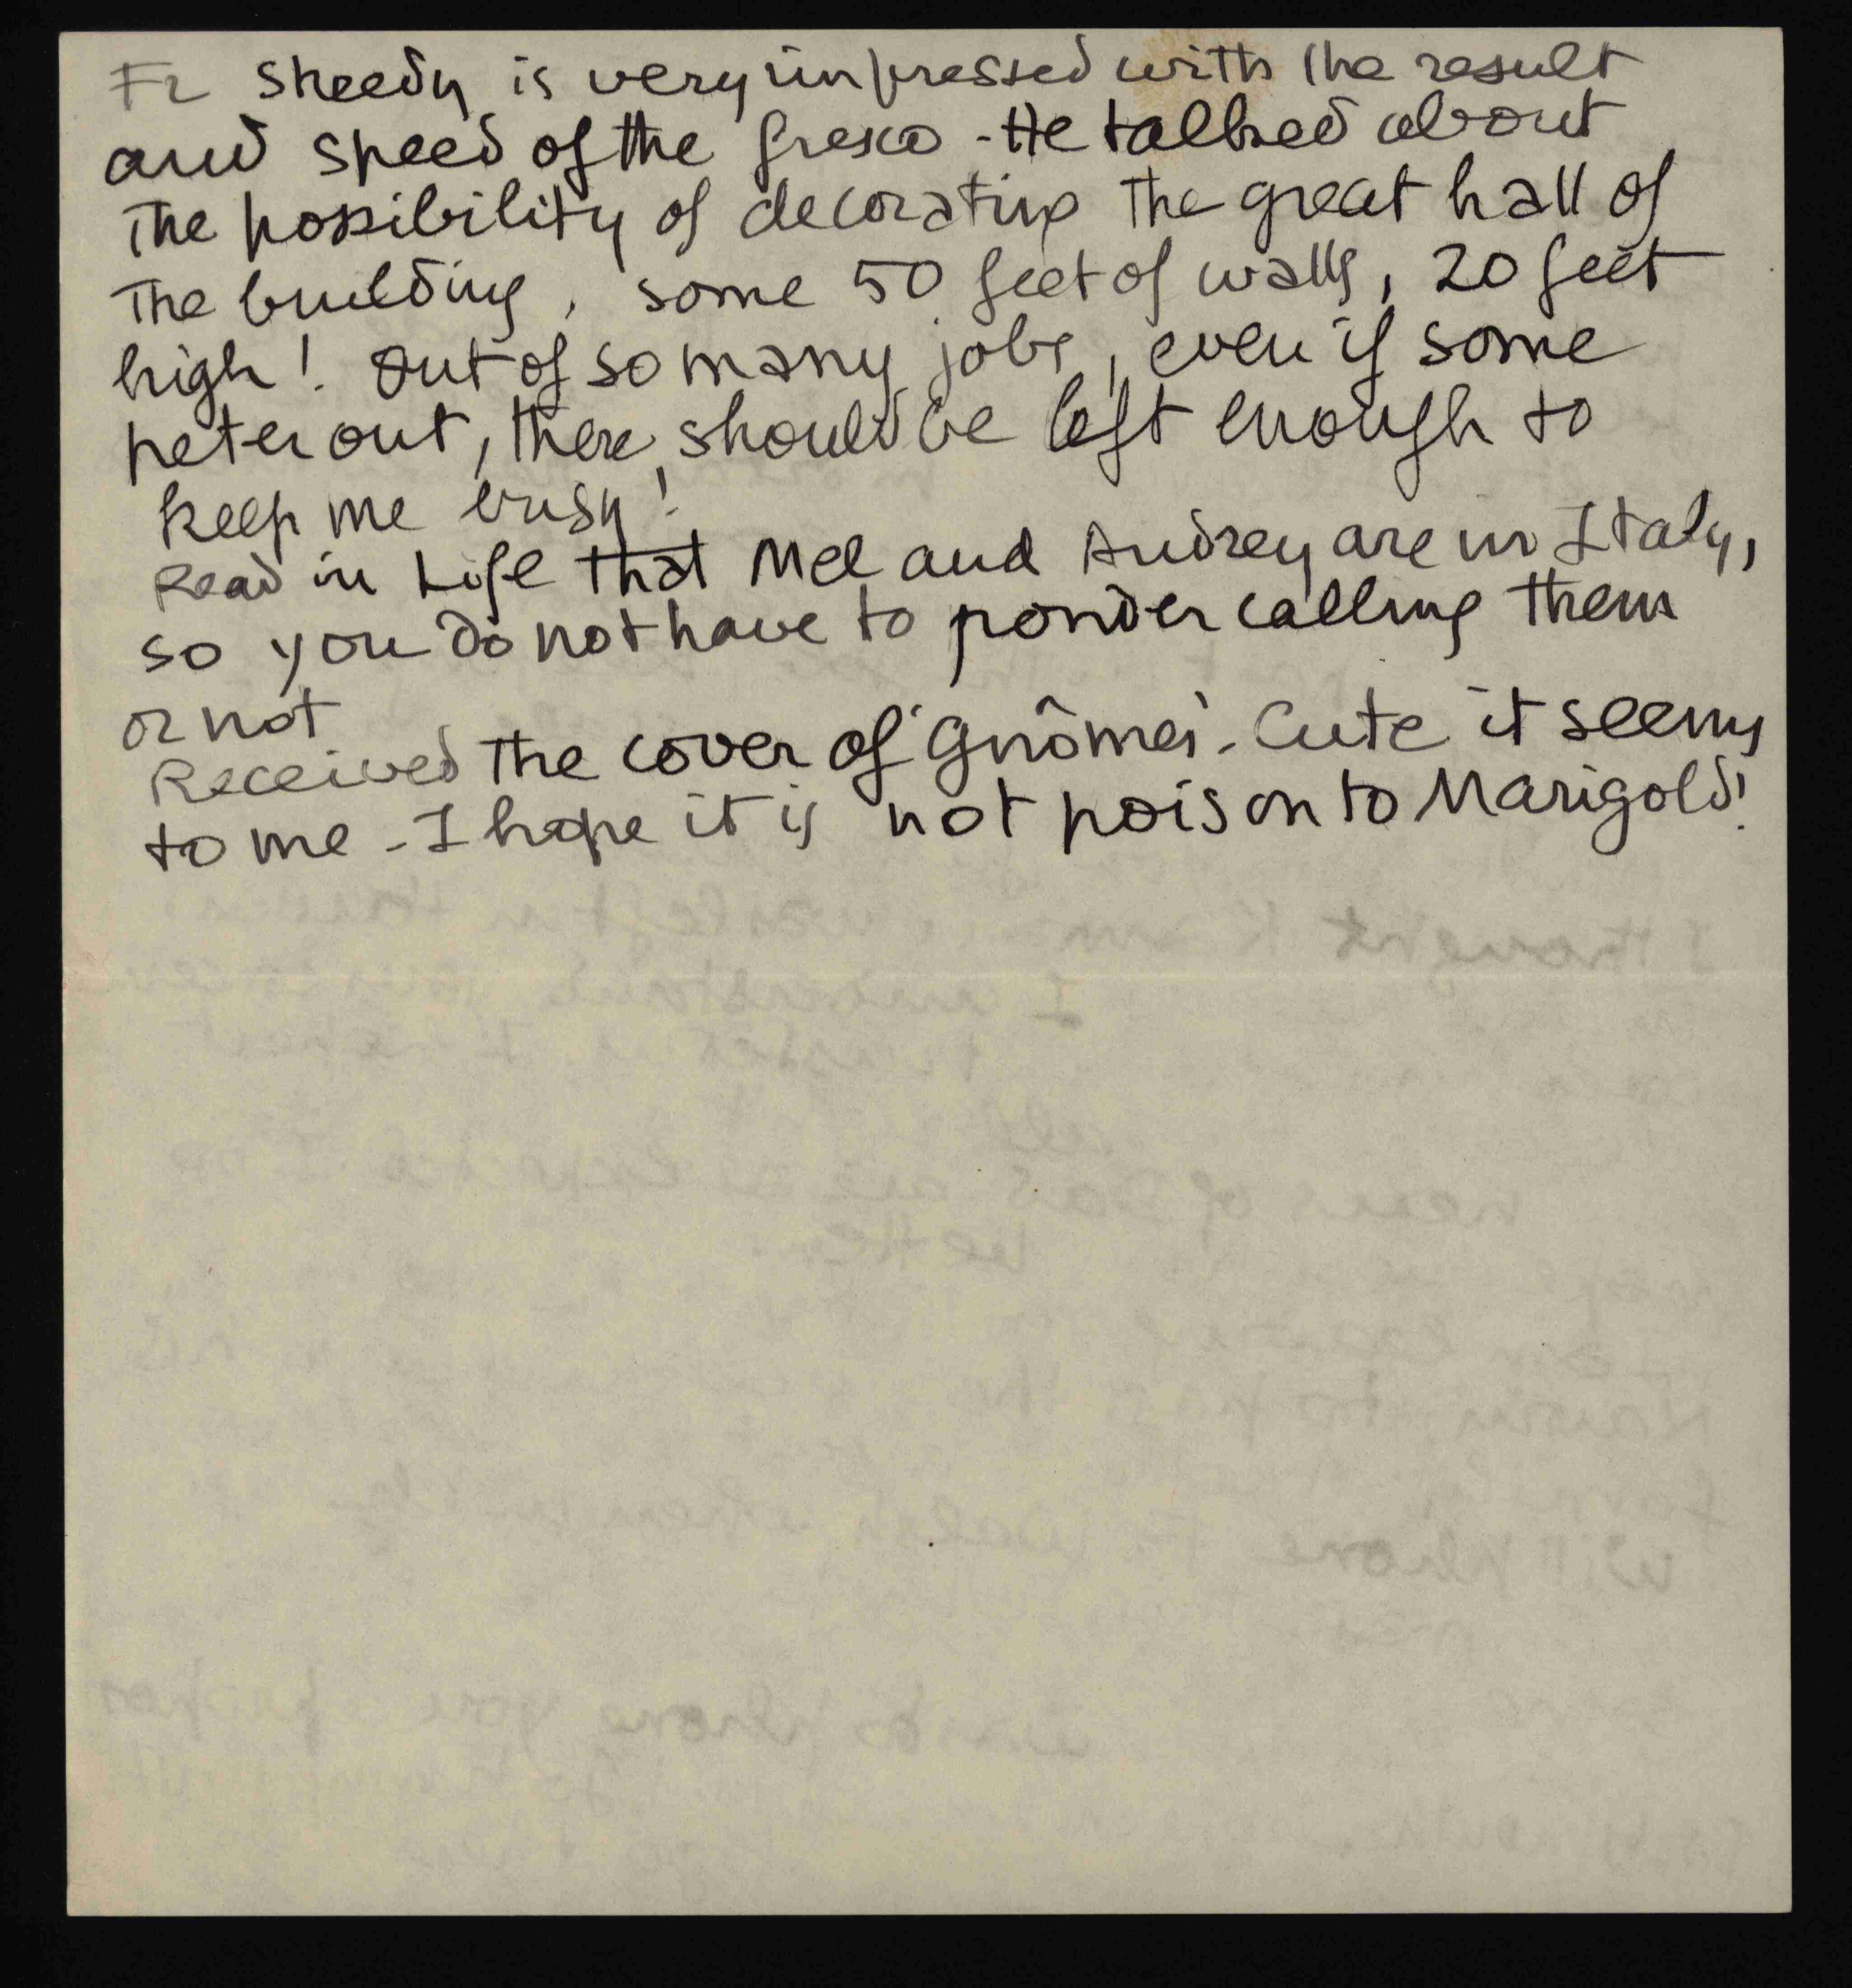 Fr Sheedy is very impressed with the result
and speed of the fresco - He talked about
the possibility of decorating the great hall of
the building, some 50 feet of walls, 20 feet
high! Out of so many jobs, even if some
peter out, there should be left enough to
keep me busy!
Read in Life that Mel and Audrey are in Italy,
so you do not have to ponder calling them
or not
Received the cover of 'Gnômes'. Cute it seems
to me - I hope it is not poison to Marigold!